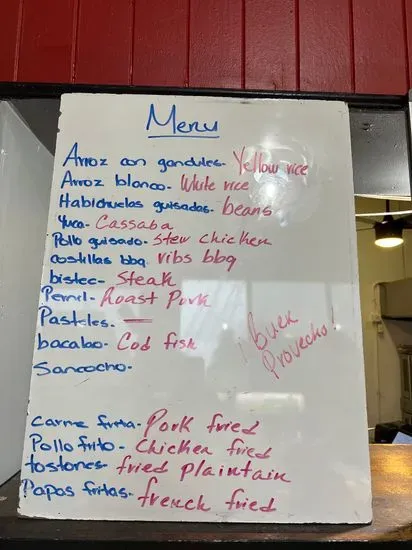 Menu
Arroz con gandules- Yellow rice
Arroz blanco- White rice
Habichuelas guisadas- beans
Yuca- Cassaba
Pollo guisado- Stew chicken
costillas bbq- ribs bbq
bistec- Steak
Pernil- Roast Pork
Pasteles. —
bacalao- Cod fish
Sancocho.
¡Buen
Provecho!
Carne frita- Pork fried
Pollo frito- Chicken fried
tostones- fried plaintain
Papas fritas- french fried